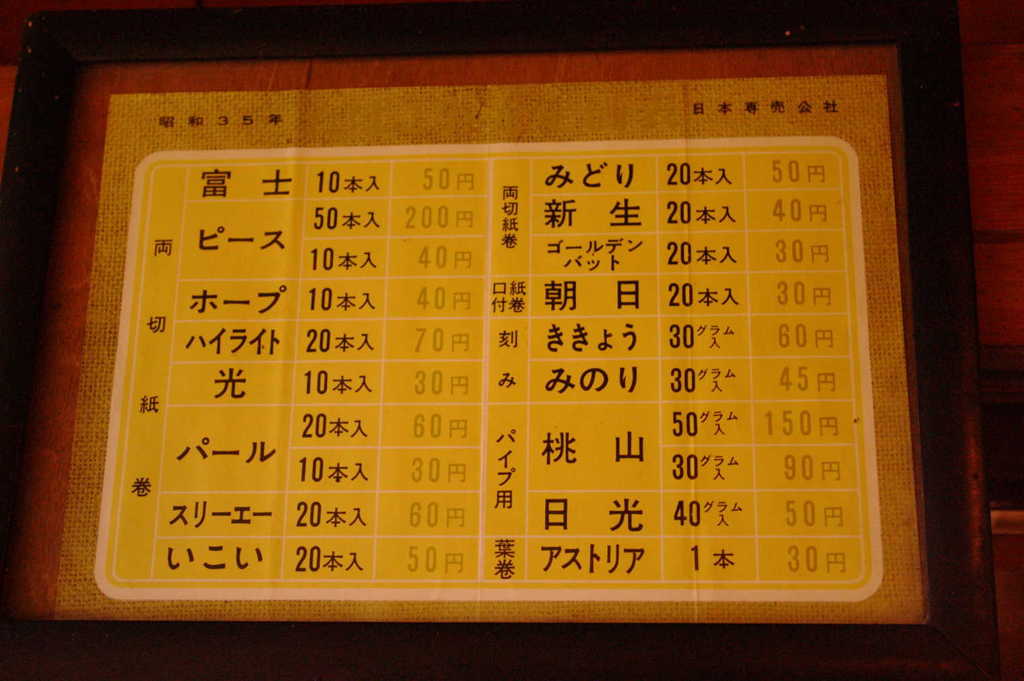 昭和35年
日本専売公社
両切紙巻
富士 10本入 50円
ピース 50本入 200円
10本入 40円
ホープ 10本入 40円
ハイライト 20本入 70円
光 10本入 30円
パール 20本入 60円
10本入 30円
スリーエー 20本入 60円
いこい 20本入 50円
両切紙巻
みどり 20本入 50円
新生 20本入 40円
ゴールデン
バット 20本入 30円
口付紙巻
朝日 20本入 30円
刻み
ききょう 30グラム入 60円
みのり 30グラム入 45円
パイプ用
桃山 50グラム入 150円
30グラム入 90円
日光 40グラム入 50円
葉巻
アストリア 1本 30円